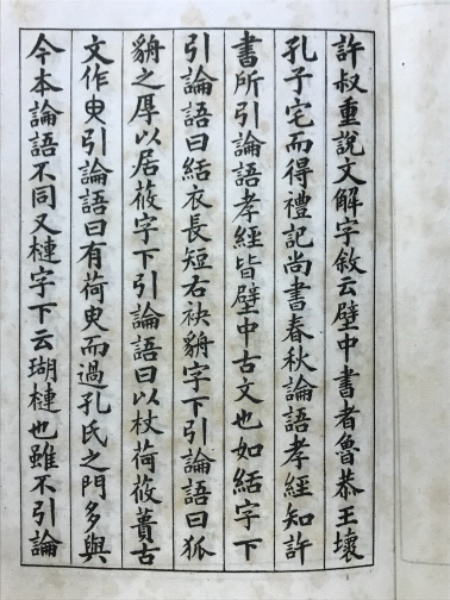 許叔重說文解字敘云壁中書者魯恭王壞
孔子宅而得禮記尚書春秋論語孝經知許
書所引論語孝經皆壁中古文也如絬字下
引論語曰絬衣長短右袂貈字下引論語曰狐
貈之厚以居莜字下引論語曰以杖荷莜蕢古
文作臾引論語曰有荷臾而過孔氏之門多與
今本論語不同又槤字下云瑚槤也雖不引論